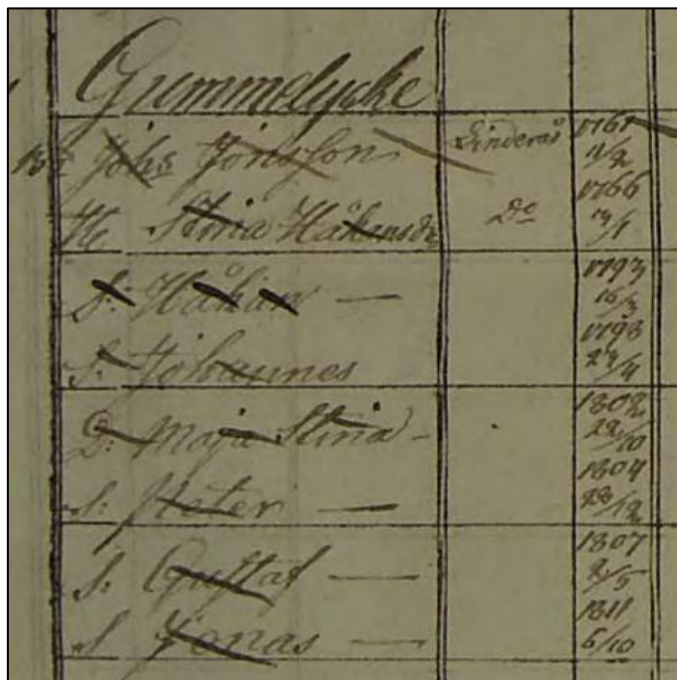 Gummelycke
Johs Jönsson Linderås 1761 11/2
H Stina Håkansdr Do 1766
S: Håkan — 1793 16/3
S: Johannes 1798 23/4
D: Maja Stina - 1802 22/10
S: Peter — 1804 28/12
S: Gustaf — 1807 2/5
S Jonas — 1811 6/10